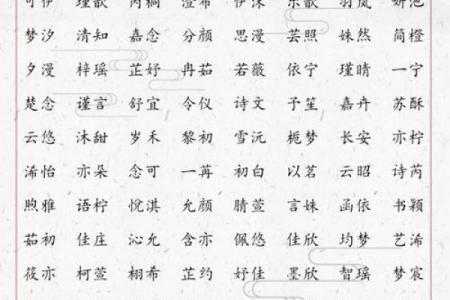 梦汐 清知 嘉念 分颜 思漫 芸照 姝然 简橙
夕漫 梓瑶 芷妤 冉茹 若薇 依宁 瑾晴 一宁
楚念 谨言 舒宜 令仪 诗文 予笙 嘉卉 苏酥
云悠 沐甜 岁禾 黎初 雪沅 栀梦 长安 亦柠
浠怡 亦朵 念可 一苒 初白 以茗 云昭 诗芮
煦雅 语柠 悦淇 允颜 腈萱 言姝 函依 书颖
茹初 佳庄 沁允 含亦 佩悠 佳欣 均梦 艺浠
筱亦 柯萱 栩希 芷约 妤佳 墨欣 智瑶 梦宸